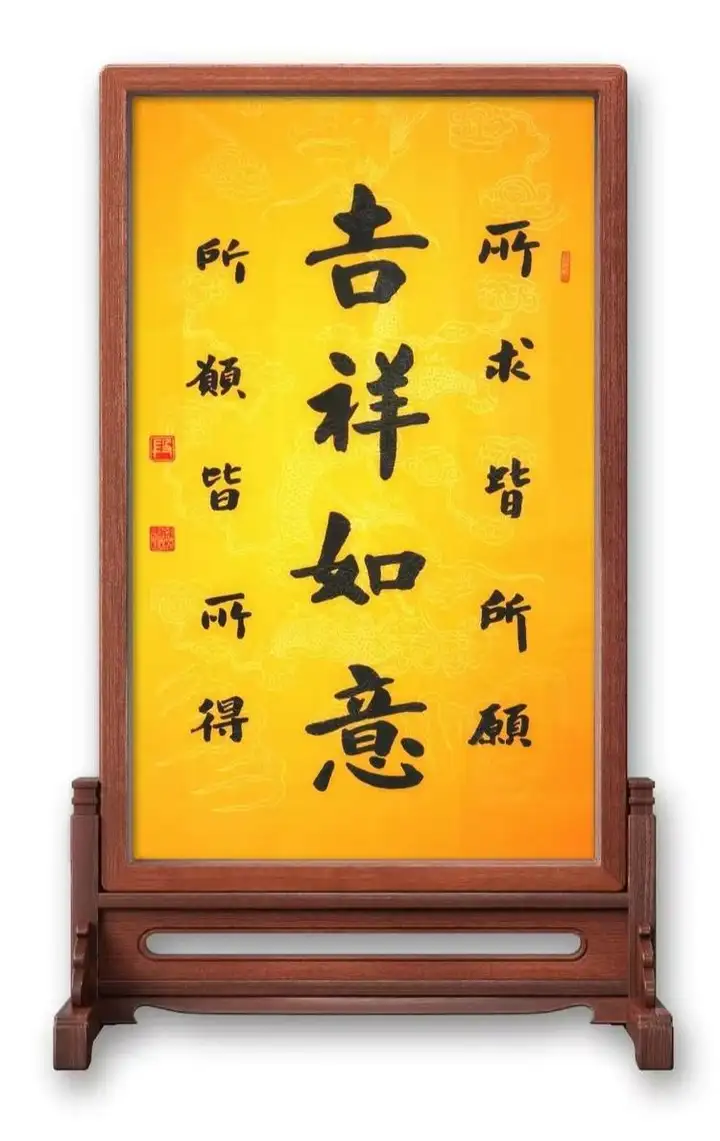 所求皆所願
吉祥如意
所願皆所得